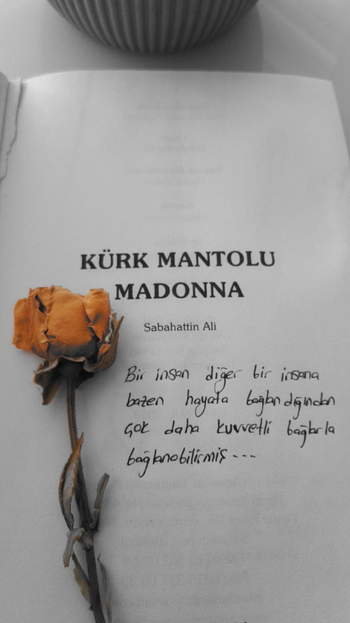 KÜRK MANTOLU
MADONNA
Sabahattin Ali
Bir insan diğer bir insana
bazen hayata bağlandığından
çok daha kuvvetli bağlarla
bağlanabilirmiş ---